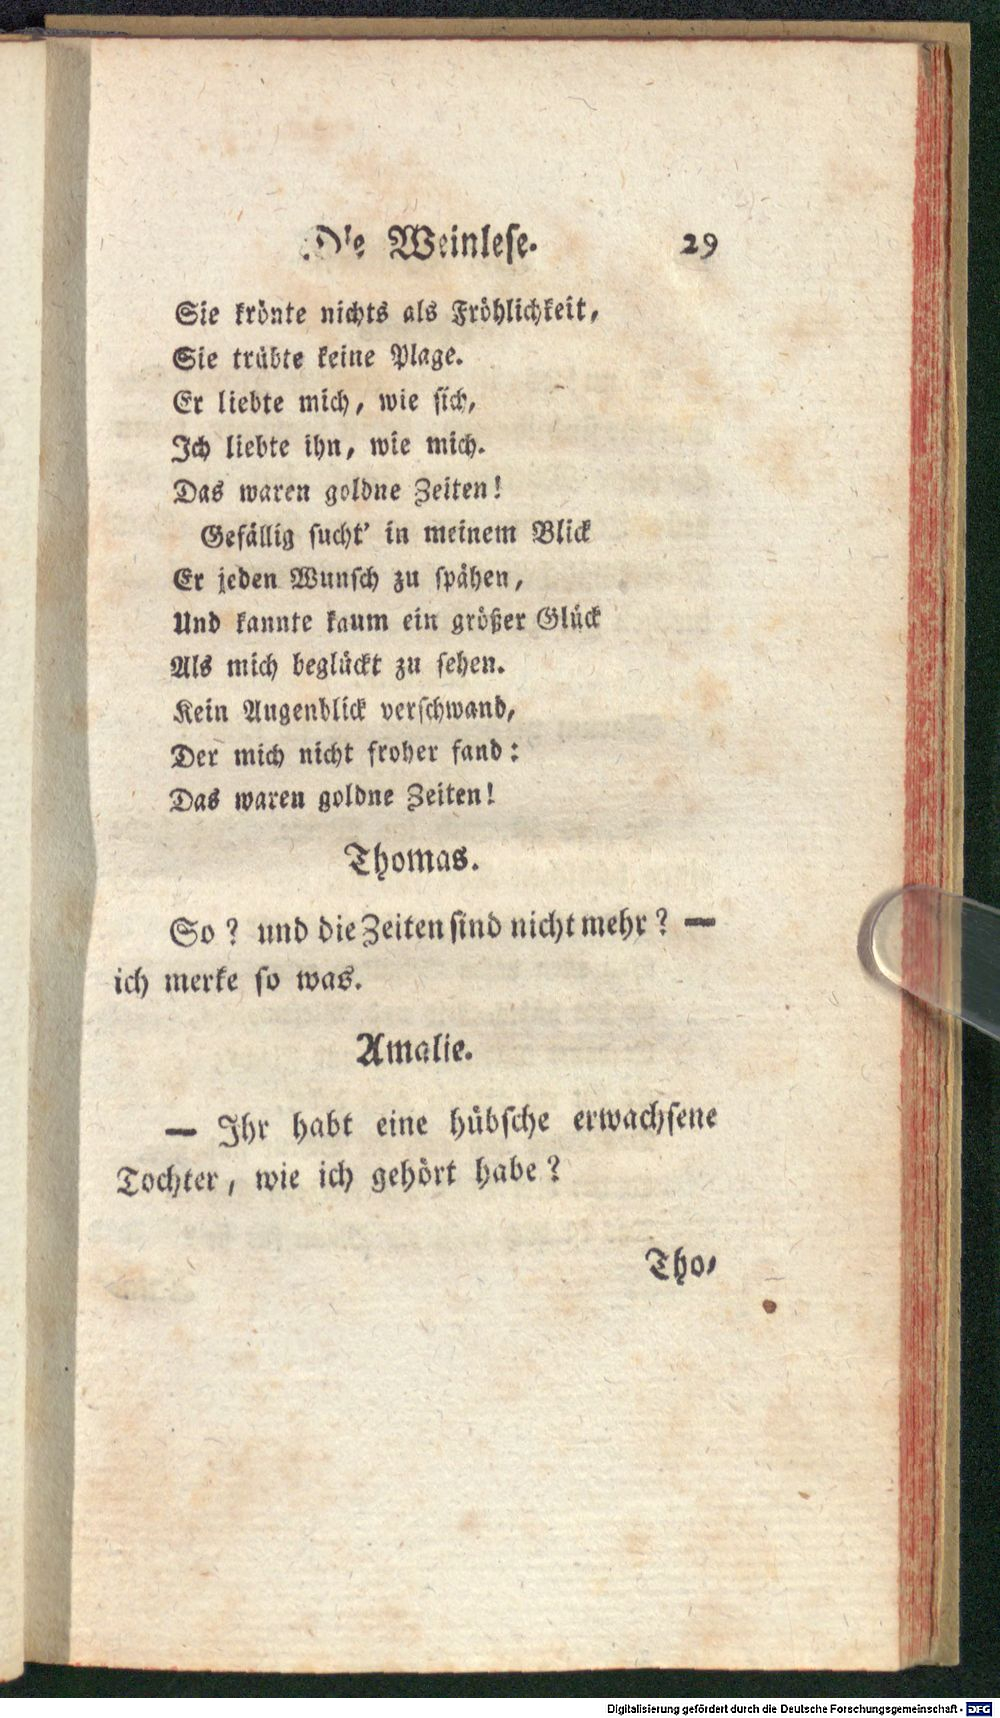 Die Weinlese. 29
Sie krönte nichts als Fröhlichkeit,
Sie trübte keine Plage.
Er liebte mich, wie sich,
Ich liebte ihn, wie mich.
Das waren goldne Zeiten!
Gefällig sucht' in meinem Blick
Er jeden Wunsch zu spähen,
Und kannte kaum ein größer Glück
Als mich beglückt zu sehen.
Kein Augenblick verschwand,
Der mich nicht froher fand:
Das waren goldne Zeiten!
Thomas.
So? und die Zeiten sind nicht mehr? —
ich merke so was.
Amalie.
— Ihr habt eine hübsche erwachsene
Tochter, wie ich gehört habe?
Tho-
Digitalisierung gefördert durch die Deutsche Forschungsgemeinschaft - DFG